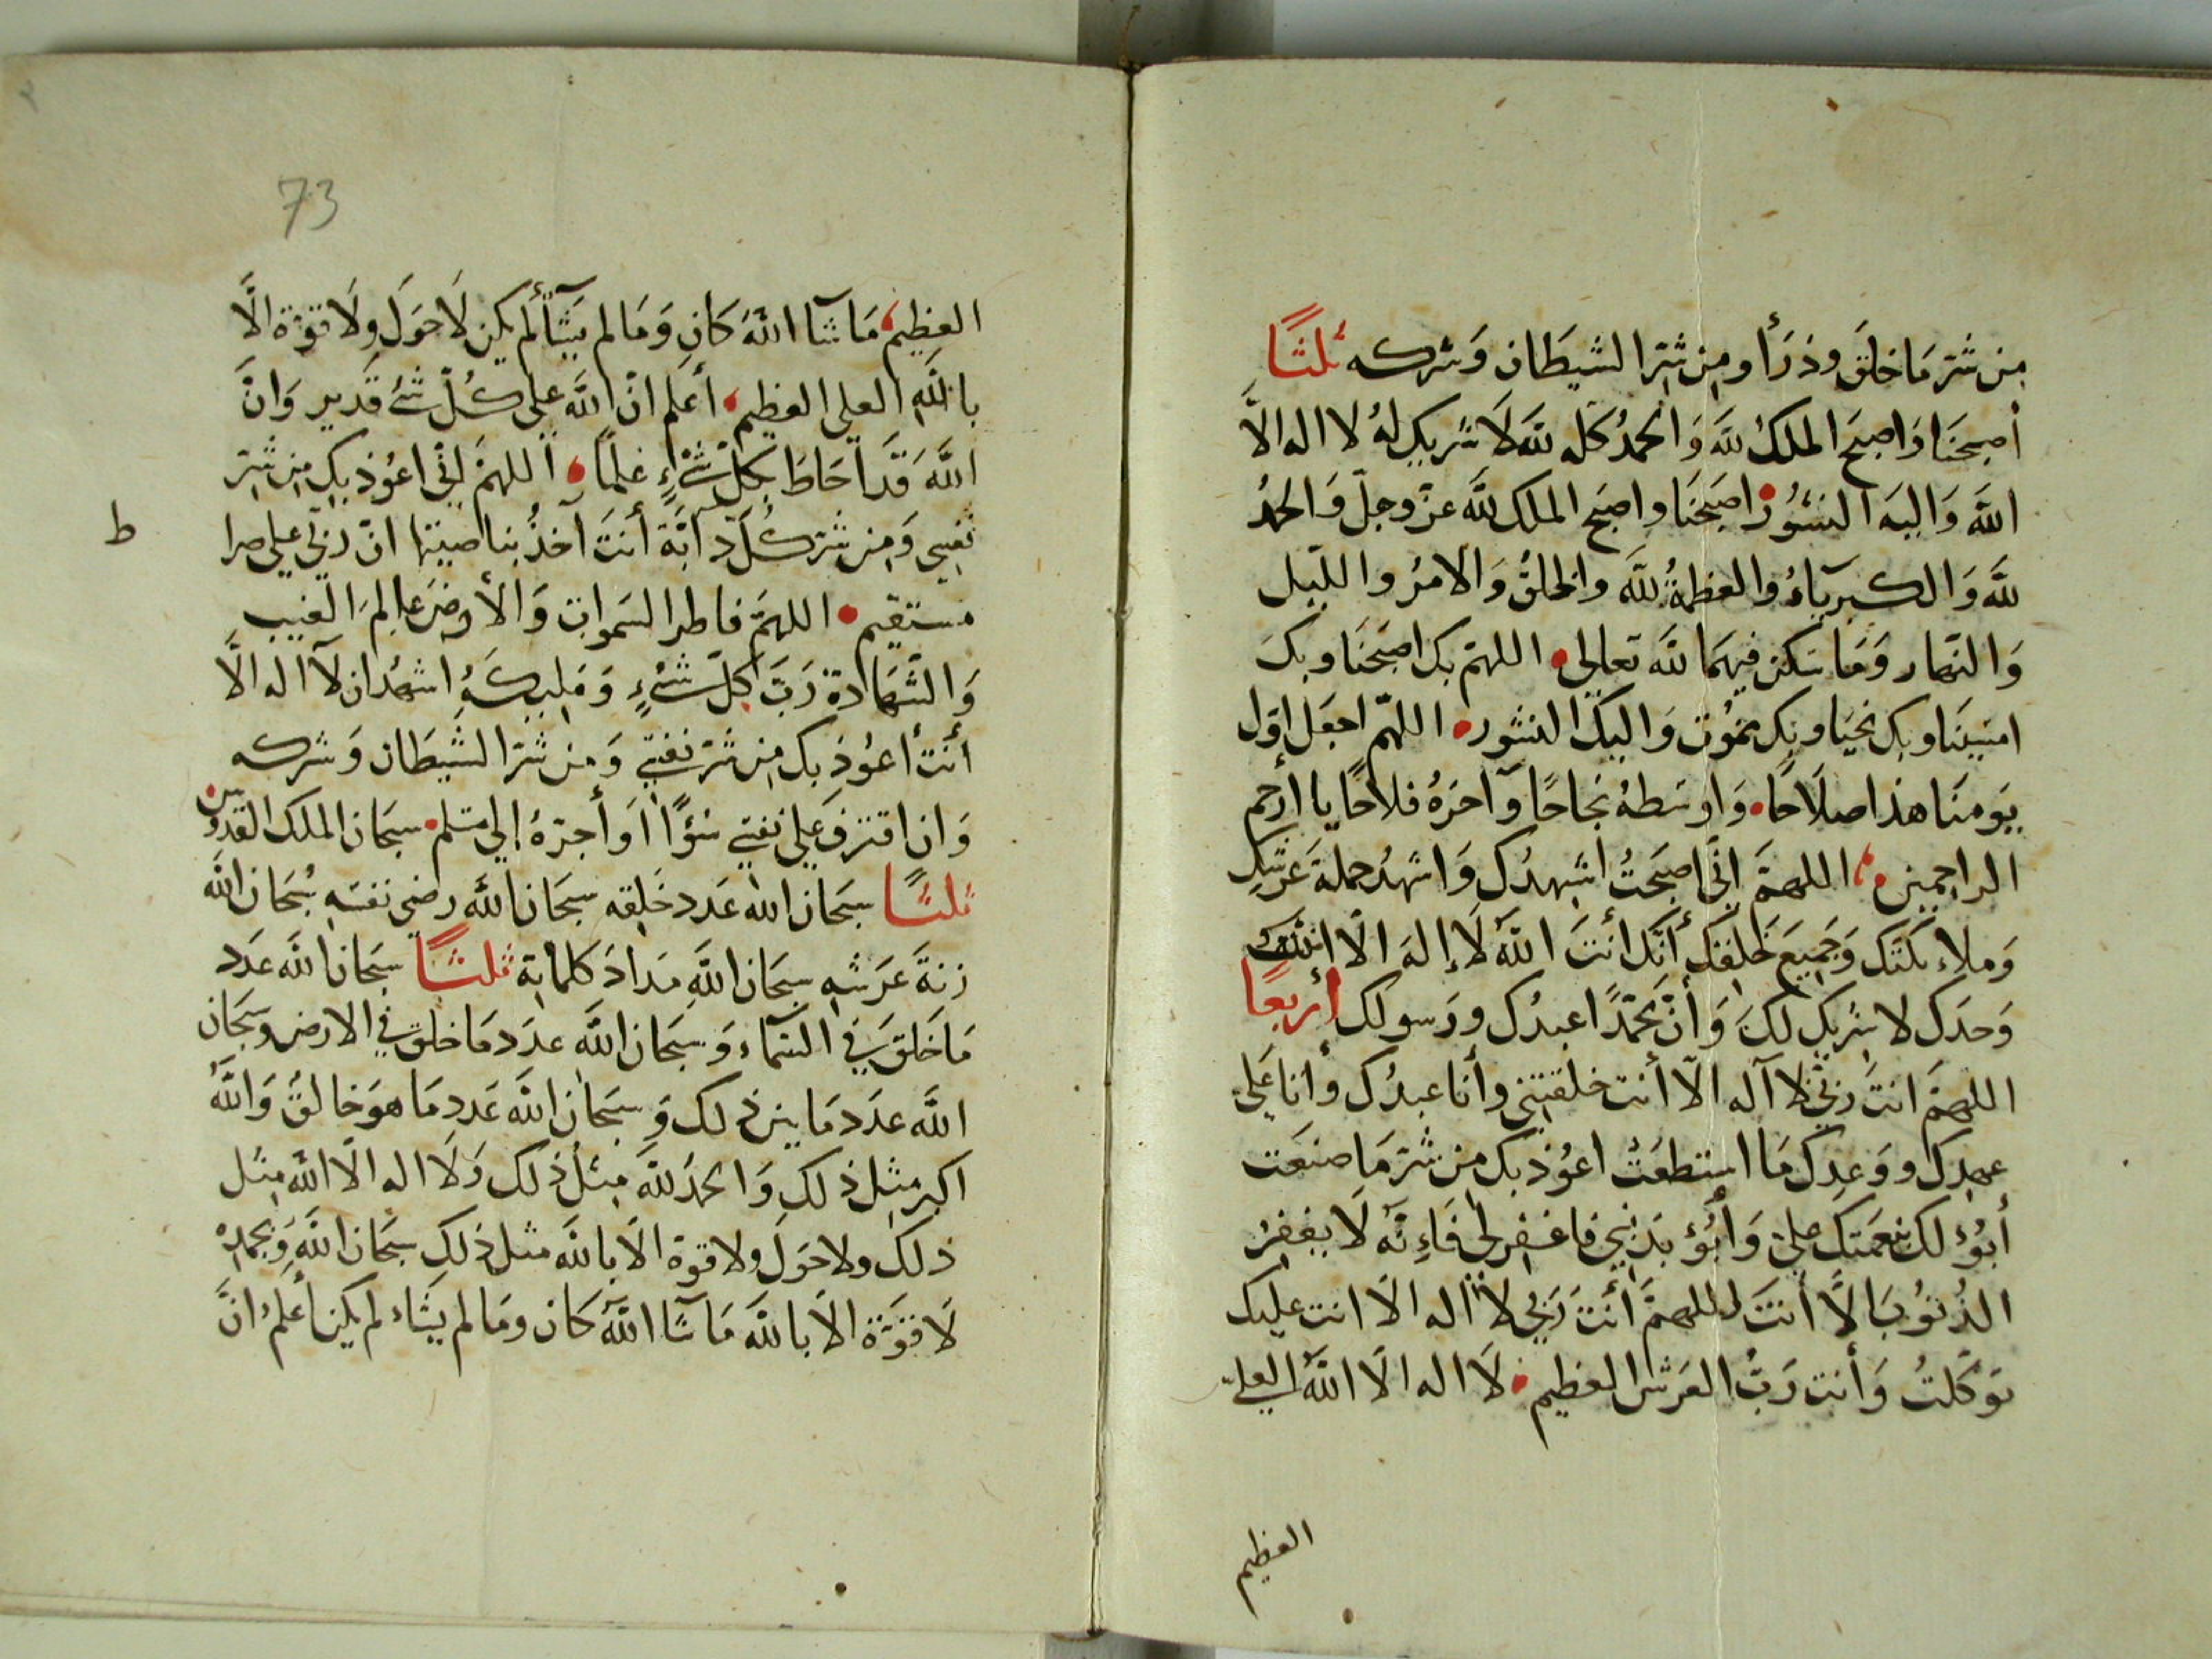 من شرّ مَا خلَقَ وذرَأ ومِن شرّ الشيطَان وَشركه ثلثًا
أصبحنَا وَاصبحَ الملكُ للّه وَالحمدُ كله للّه لَا شريك لهُ لا اله الاَّ
اللّه وَاليهَ النشُورُ اصبَحنَا واصبَح الملك للّه عزّ وجلّ وَالحمدُ
للّه وَالكبريَآءُ والعظمةُ للّه والخلقُ وَالامرُ والليّل
وَالنّهار وَمَا سَكن فيهمَا للّه تعالى اللهمّ بك اصبَحنَا وبكَ
امسَينَا وبك نحيَا وبك نموُت وَاليكَ النشور اللهمّ اجعَل اوّل
يَومنَا هذا صلَاحًا وَاوسَطهُ نجَاحًا وآخرَهُ فلَاحًا يا أرحم
الراحمين اللهمَّ انّي اصبَحتُ اشهدُك وَاشهدُ حملةَ عَرشك
وَملاءِكتَك وَجَميعَ خَلقك أنّك أنتَ اللّهُ لَا إلهَ الاّ انت
وَحدَك لا شريك لكَ وَأنّ محمّدًا عبدُك ورَسولك أربعًا
اللهمَّ انتَ ربّي لا آله الاّ أنت خلقتني وأنا عبدُك وأنا عَلي
عهدِك ووَعدِك مَا استطعَتُ اعوُذ بك من شرّ مَا صنعَت
أبوُء لك بنعمَتك عليّ وَأبُؤ بذنبي فاغفر لي فَاءِنّه لَا يغفِرُ
الذُنوُبَ الاَّ أنتَ اللهمَّ أنتَ رَبّي لاَ اله الاَ انت عليك
توَكَلتُ وَأنت رَبُّ العَرش العظيم لاَ اله الاَ اللّهُ العليّ
العظيم
73
العظيم مَا شآا اللّهُ كَان وَمَا لم يَشَأ لم يكن لَا حوَلَ ولَا قوّة الاَّ
باللّهِ العلي العظيم أعَلم انّ اللّه على كُلّ شئ قَدير وَانَّ
اللّهَ قَد احَاطَ بكلّ شئٍ علمًا اللهمّ انّي اعوُذ بك من شرّ
نفسي وَمن شرّ كُلّ دآبّة أنتَ آخذُ بناصيتهَا انّ ربّي علي صرا
مستقيم اللهمَّ فاطر السَموات وَالأرض عالمَ الغيب
وَالشّهَادة رَبّ كلّ شئٍ وَمَليكهُ اشهدُ ان لآ اله الاَّ
أنت أعوُذ بك من شرّ نفسي وَمن شرّ الشيطَان وَشركه
وَان اقترف عَلي نفسي سُوءًا اَو أجرّهُ إلي مسلم سبحَان الملك القدوس
ثلثًا سبحَان اللّه عَدد خَلقه سبحَان اللّه رضي نفسَه سُبحَان اللّه
زنةَ عَرشه سبحَان اللّهِ مدادَ كلماته ثلثًا سبحَان اللّه عَدَد
مَا خَلقَ في السّمآء وَسبحَان اللّه عدَد مَا خلقَ في الارض وسبحَان
اللّه عدَد مَا بين ذلك وَسبحَان اللّه عَدد مَا هوَ خَالقُ وَاللّهُ
اكبر مثل ذلك وَالحمدُ للّه مِثلُ ذلك وَلَا اله الاّ اللّه مِثل
ذلك ولا حَولَ ولا قوة الاَ باللّه مثل ذلك سبحَان اللّهِ وَبحمده
لَا قوّة الاَ باللّه مَا شآا اللّهُ كَان ومَا لم يشَاء لم يكن أعَلمُ انَّ
ط